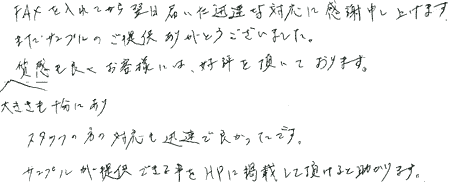 FAXを入れてから翌日届いた迅速な対応に感謝申し上げます
またサンプルのご提供ありがとうございました。
質感も良くお客様には、好評を頂いております。
大きさも十分にあり
スタッフの方の対応も迅速で良かったです。
サンプルが提供できる事をHPに掲載して頂けると助かります。